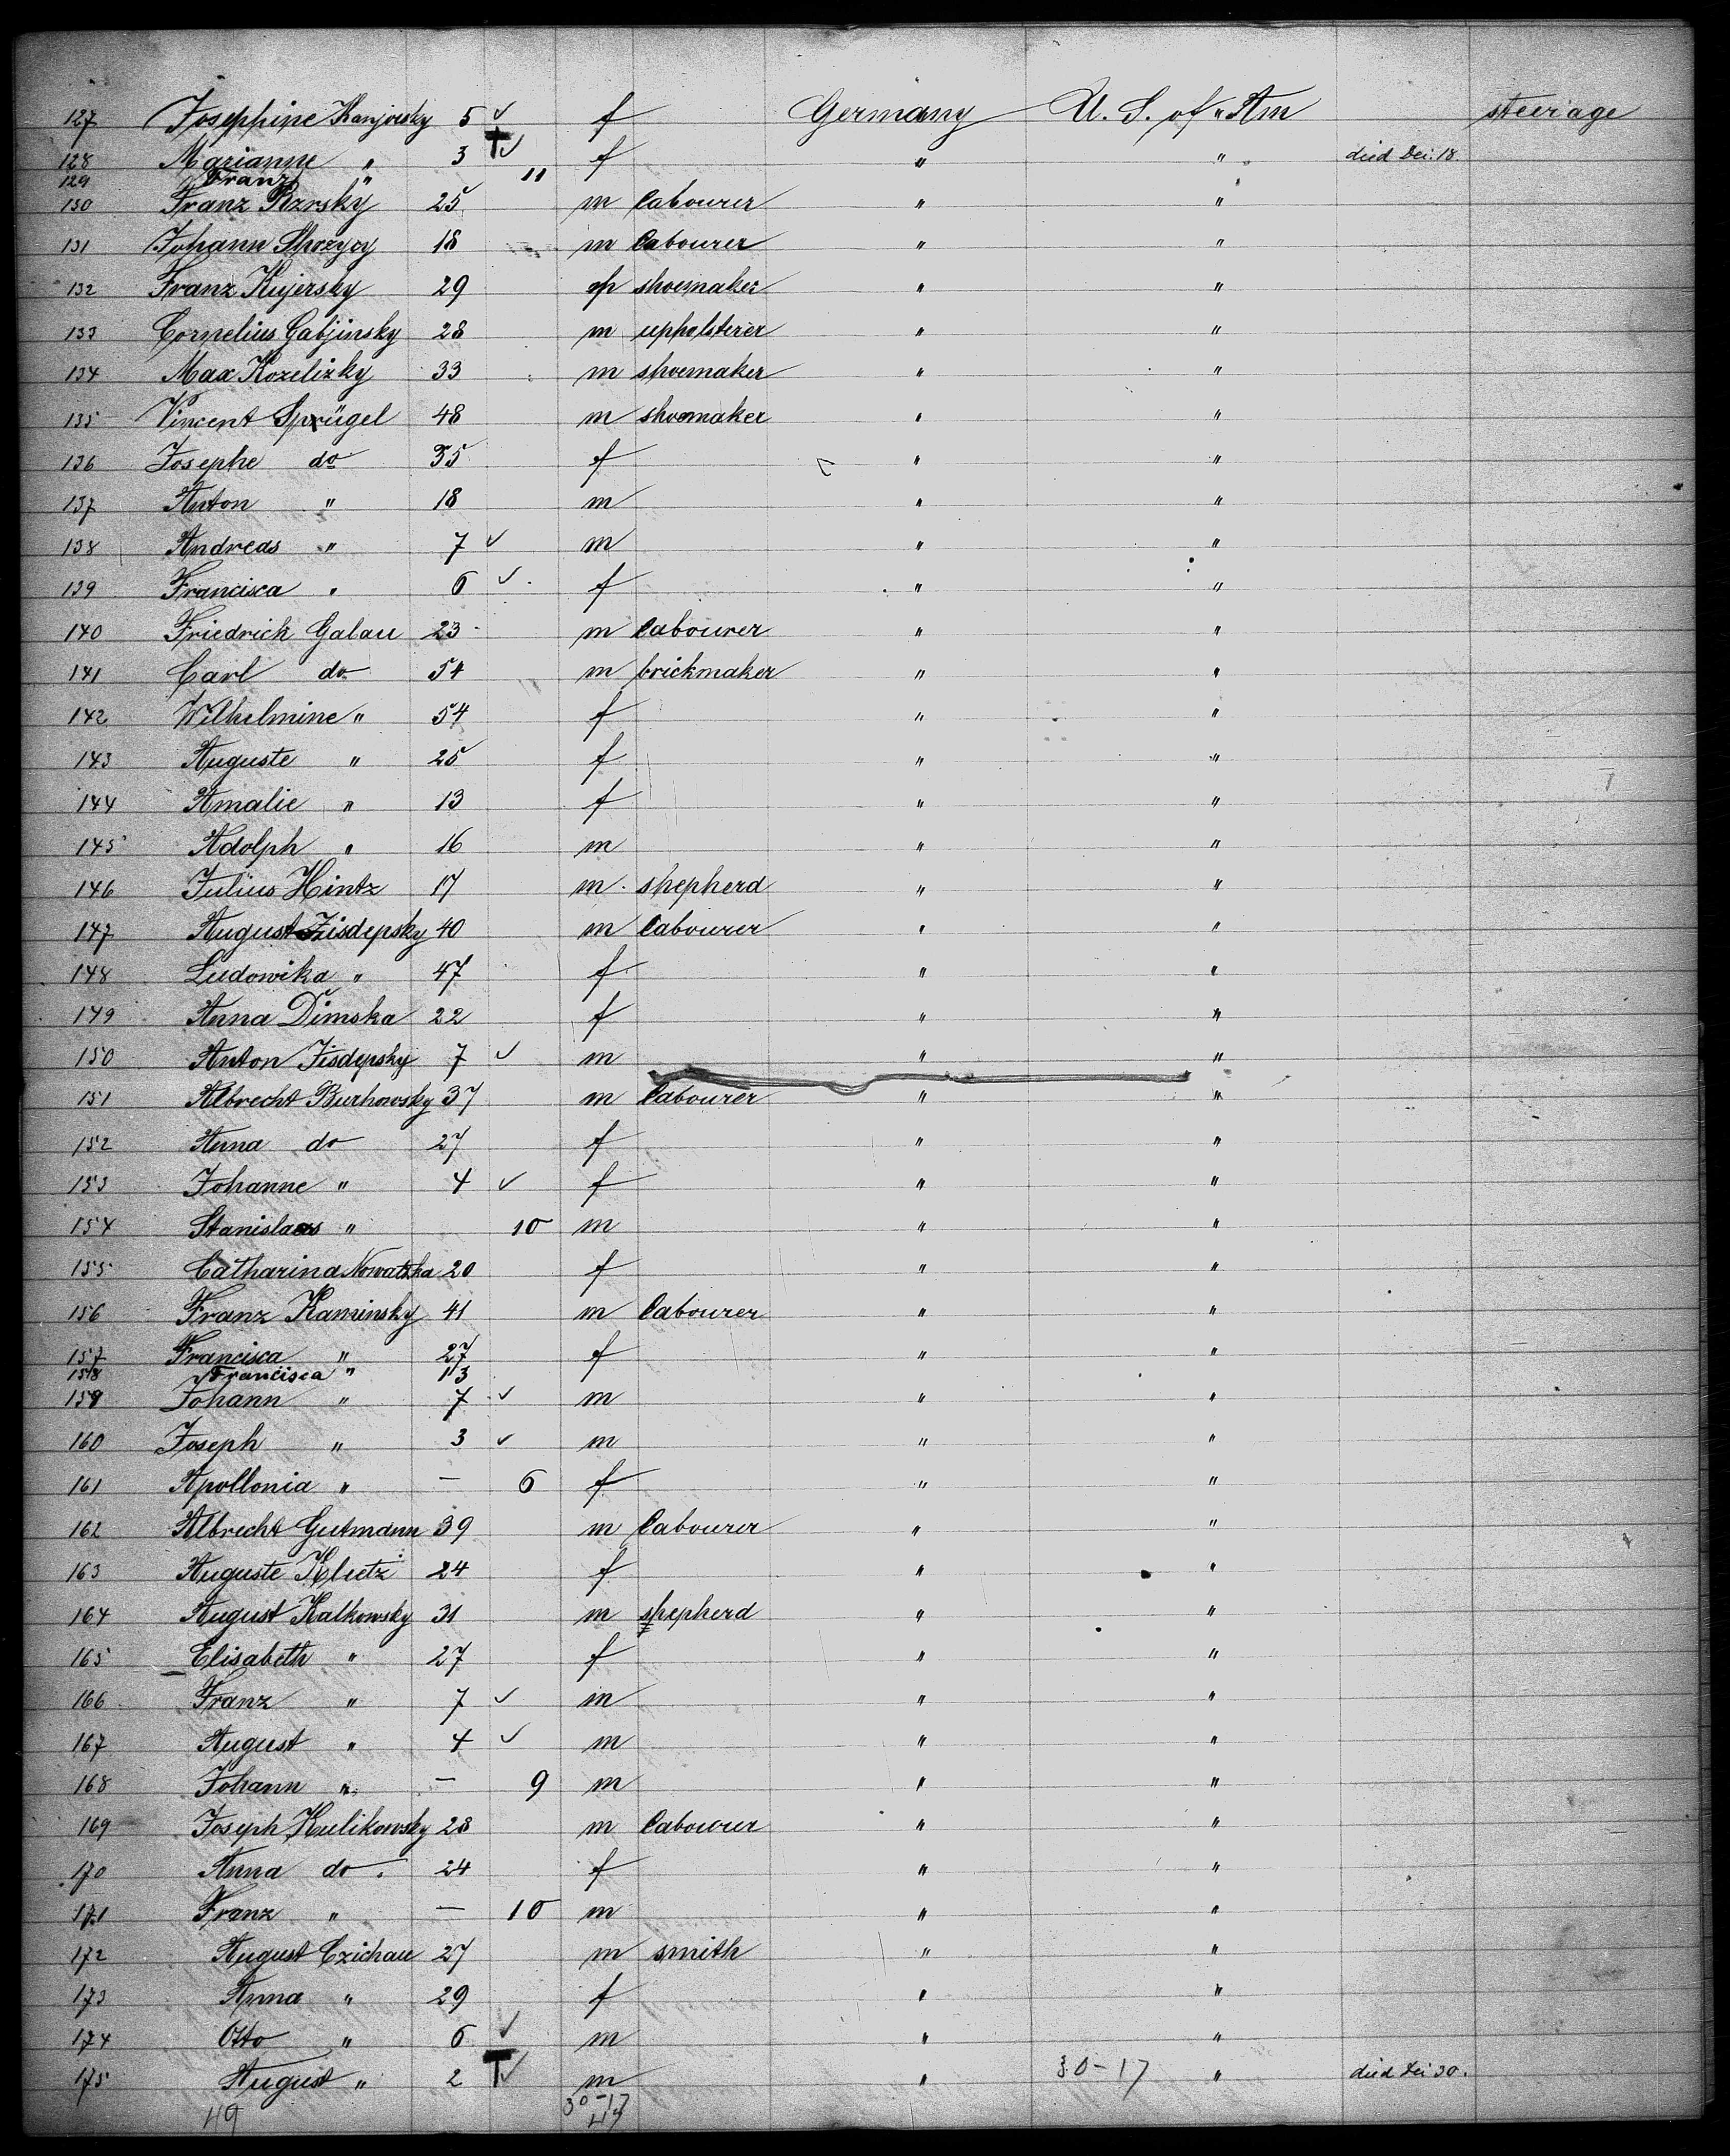 127 Josephine Kanjorsky 5 ✓ f Germany U. S. of Am steerage
128 Marianne " 3 T✓ f " " died Dei: 18.
129 Franz " 11
130 Franz Rzrsky 25 m labourer " "
131 Johann 18 m labourer " "
132 Franz Kujersky 29 m shoemaker " "
133 Cornelius Gabjinsky 28 m upholsterer " "
134 Max Kozelizky 33 m shoemaker " "
135 Vincent Sprügel 48 m shoemaker " "
136 Josephe do 35 f " "
137 Anton " 18 m " "
138 Andreas " 7 ✓ m " "
139 Francisca " 6 ✓ f " "
140 Friedrich Galau 23 m labourer " "
141 Carl do 54 m brickmaker " "
142 Wilhelmine " 54 f " "
143 Auguste " 25 f " "
144 Amalie " 13 f " "
145 Adolph " 16 m " "
146 Julius Hintz 17 m shepherd " "
147 August Zisdepsky 40 m labourer " "
148 Ludowika " 47 f " "
149 Anna Dimska 22 f " "
150 Anton Zisdepsky 7 ✓ m " "
151 Albrecht Burhowsky 37 m labourer " "
152 Anna do 27 f " "
153 Johanne " 4 ✓ f " "
154 Stanislaus " 10 m " "
155 Catharina Nowatzka 20 f " "
156 Franz Kaminsky 41 m labourer " "
157 Francisca " 27 f " "
158 Francisca " 13
159 Johann " 7 ✓ m " "
160 Joseph " 3 ✓ m " "
161 Apollonia " — 6 f " "
162 Albrecht Gutmann 39 m labourer " "
163 Auguste Klietz 24 f " "
164 August Kalkowsky 31 m shepherd " "
165 Elisabeth " 27 f " "
166 Franz " 7 ✓ m " "
167 August " 4 ✓ m " "
168 Johann " — 9 m " "
169 Joseph Hulikowsky 28 m labourer " "
170 Anna do 24 f " "
171 Franz " — 10 m " "
172 August Czichau 27 m smith " "
173 Anna " 29 f " "
174 Otto " 6 ✓ m " "
175 August " 2 T✓ m " 30-17 " died Dei 30.
49 30-17
49